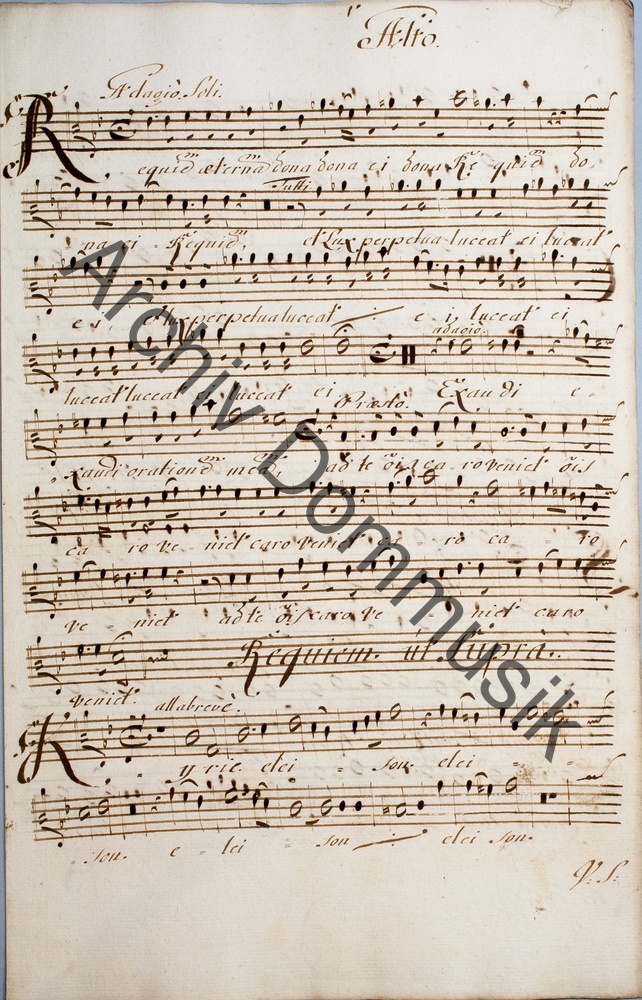 Alto.
Adagio. Soli.
Requiem æternam dona dona ei dona Re: quiem do
Tutti
na ei - Requiem, et Lux perpetua luceat ei luceat
ei, et Lux perpetua luceat ei, luceat ei
adagio.
luceat luceat ei luceat ei Exau di e
Præsto.
xaudi orationem meam, ad te omnis ca ro veniet omnis
ca ro ve niet caro veniet ca ro ca ro
ve - niet ad te omnis caro ve - niet caro
Requiem. ut Supra.
veniet. allabreve.
Kyrie. elei - son. elei - -
son. e - lei - son elei son.
V: S:
Archiv Dommusik